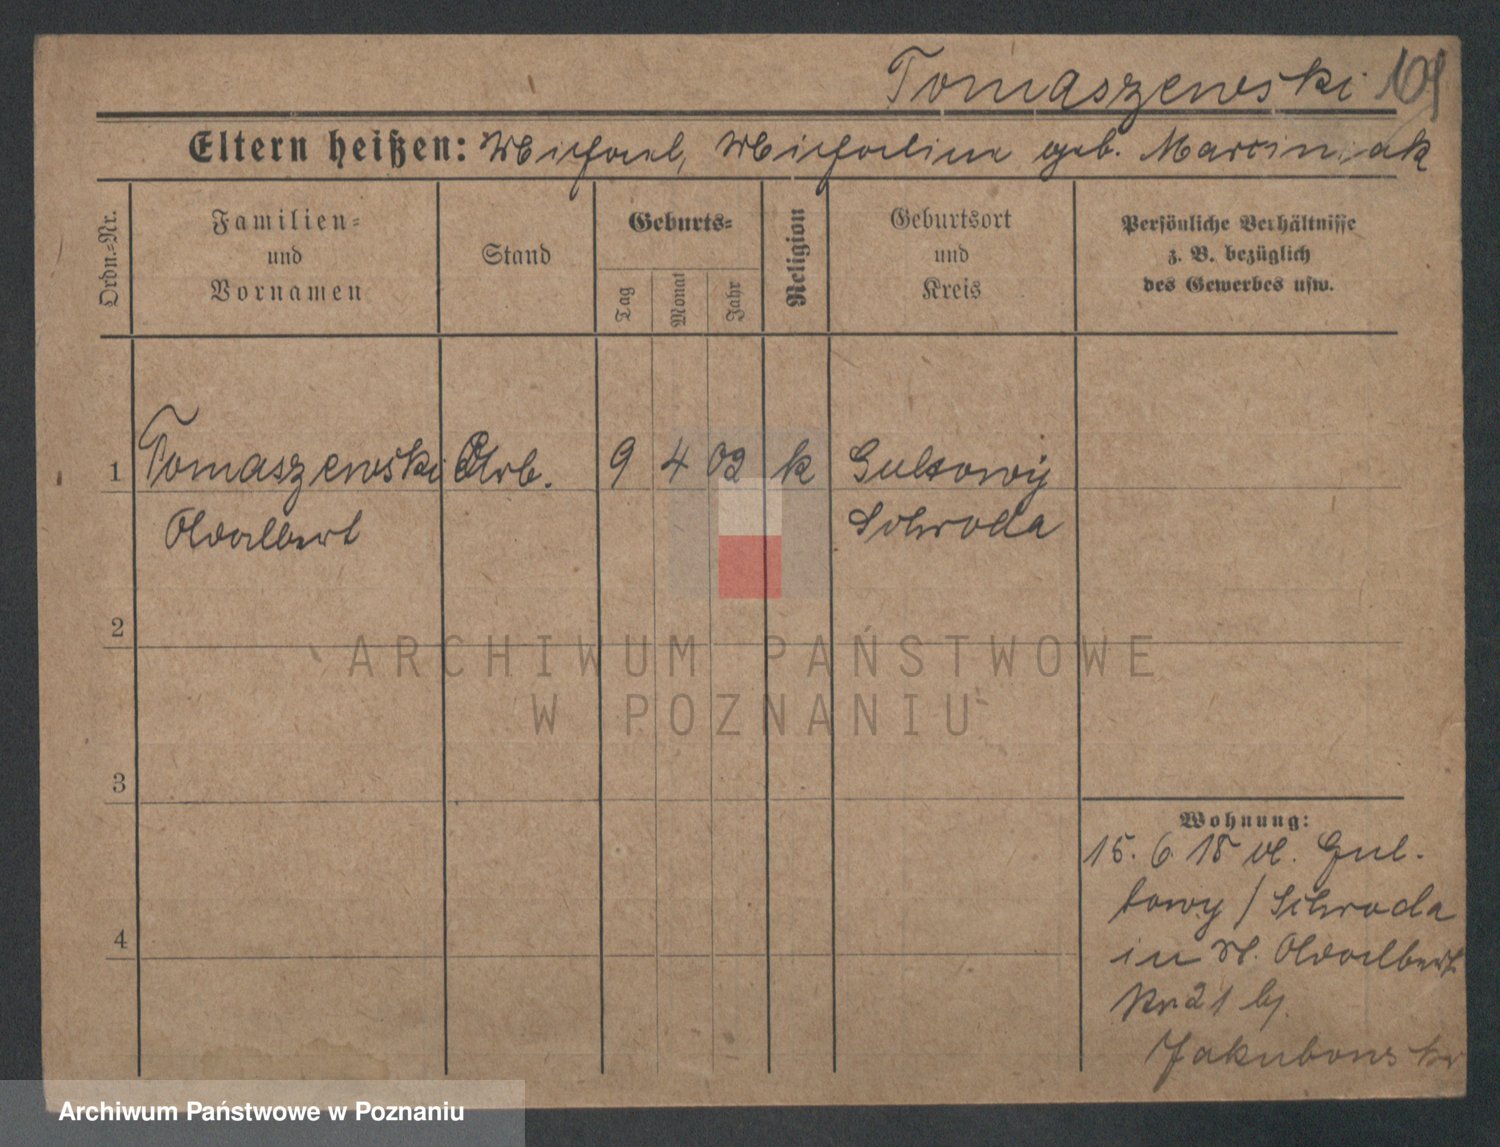 Tomaszewski 101
Eltern heißen: Michael, Michaline geb. Marciniak
Ordn.-Nr.
Familien-
und
Vornamen
Stand
Geburts-
Tag
Monat
Jahr
Religion
Geburtsort
und
Kreis
Persönliche Verhältnisse
z. B. bezüglich
des Gewerbes usw.
1 Tomaszewski Arb. 9 4 02 k Gultowy
Adalbert Schroda
2
3
4
Wohnung:
15. 6. 18 Gul-
towy / Schroda
in St. Adalbert
Nr 21 b/
Jakubowski
ARCHIWUM PAŃSTWOWE
W POZNANIU
Archiwum Państwowe w Poznaniu